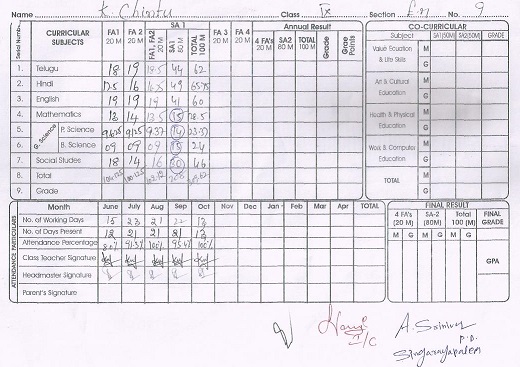 Name K. Chintu Class IX Section E.m No. 9
Serial Number CURRICULAR SUBJECTS FA1 20 M FA 2 20 M SA 1 FA1, FA2 20 M SA1 80 M TOTAL 100 M Annual Result FA 3 20 M FA 4 20 M 4 FA's 20 M SA2 80 M TOTAL 100 M Grade Grade Points
1. Telugu 18 19 18.5 44 62
2. Hindi 17.5 16 49
3. English 19 19 19 41 60
4. Mathematics 13 14 13.5 15 28.5
5. G. Science P. Science 9.37 14 23.37
6. B. Science 09 09 09 15 24
7. Social Studies 18 14 16 30 46
8. Total
9. Grade
CO-CURRICULAR
Subject SA1(50M) SA2(50M) GRADE
Value Ecuation & Life Skills M G
Art & Cultural Education M G
Health & Physical Education M G
Work & Computer Education M G
TOTAL M G
ATTENDANCE PARTICULARS Month June July Aug Sep Oct Nov Dec Jan Feb Mar Apr TOTAL
No. of Working Days 15 23 21 22 13
No. of Days Present 12 21 21 21 13
Attendance Percentage 80% 91.3% 100% 95.4% 100%
Class Teacher Signature
Headmaster Signature
Parent's Signature
FINAL RESULT
4 FA's (20 M) SA-2 (80 M) Total (100 M) FINAL GRADE
M G M G M G
GPA
I/C
A. Srinivas
P.D.
Singarayapalem